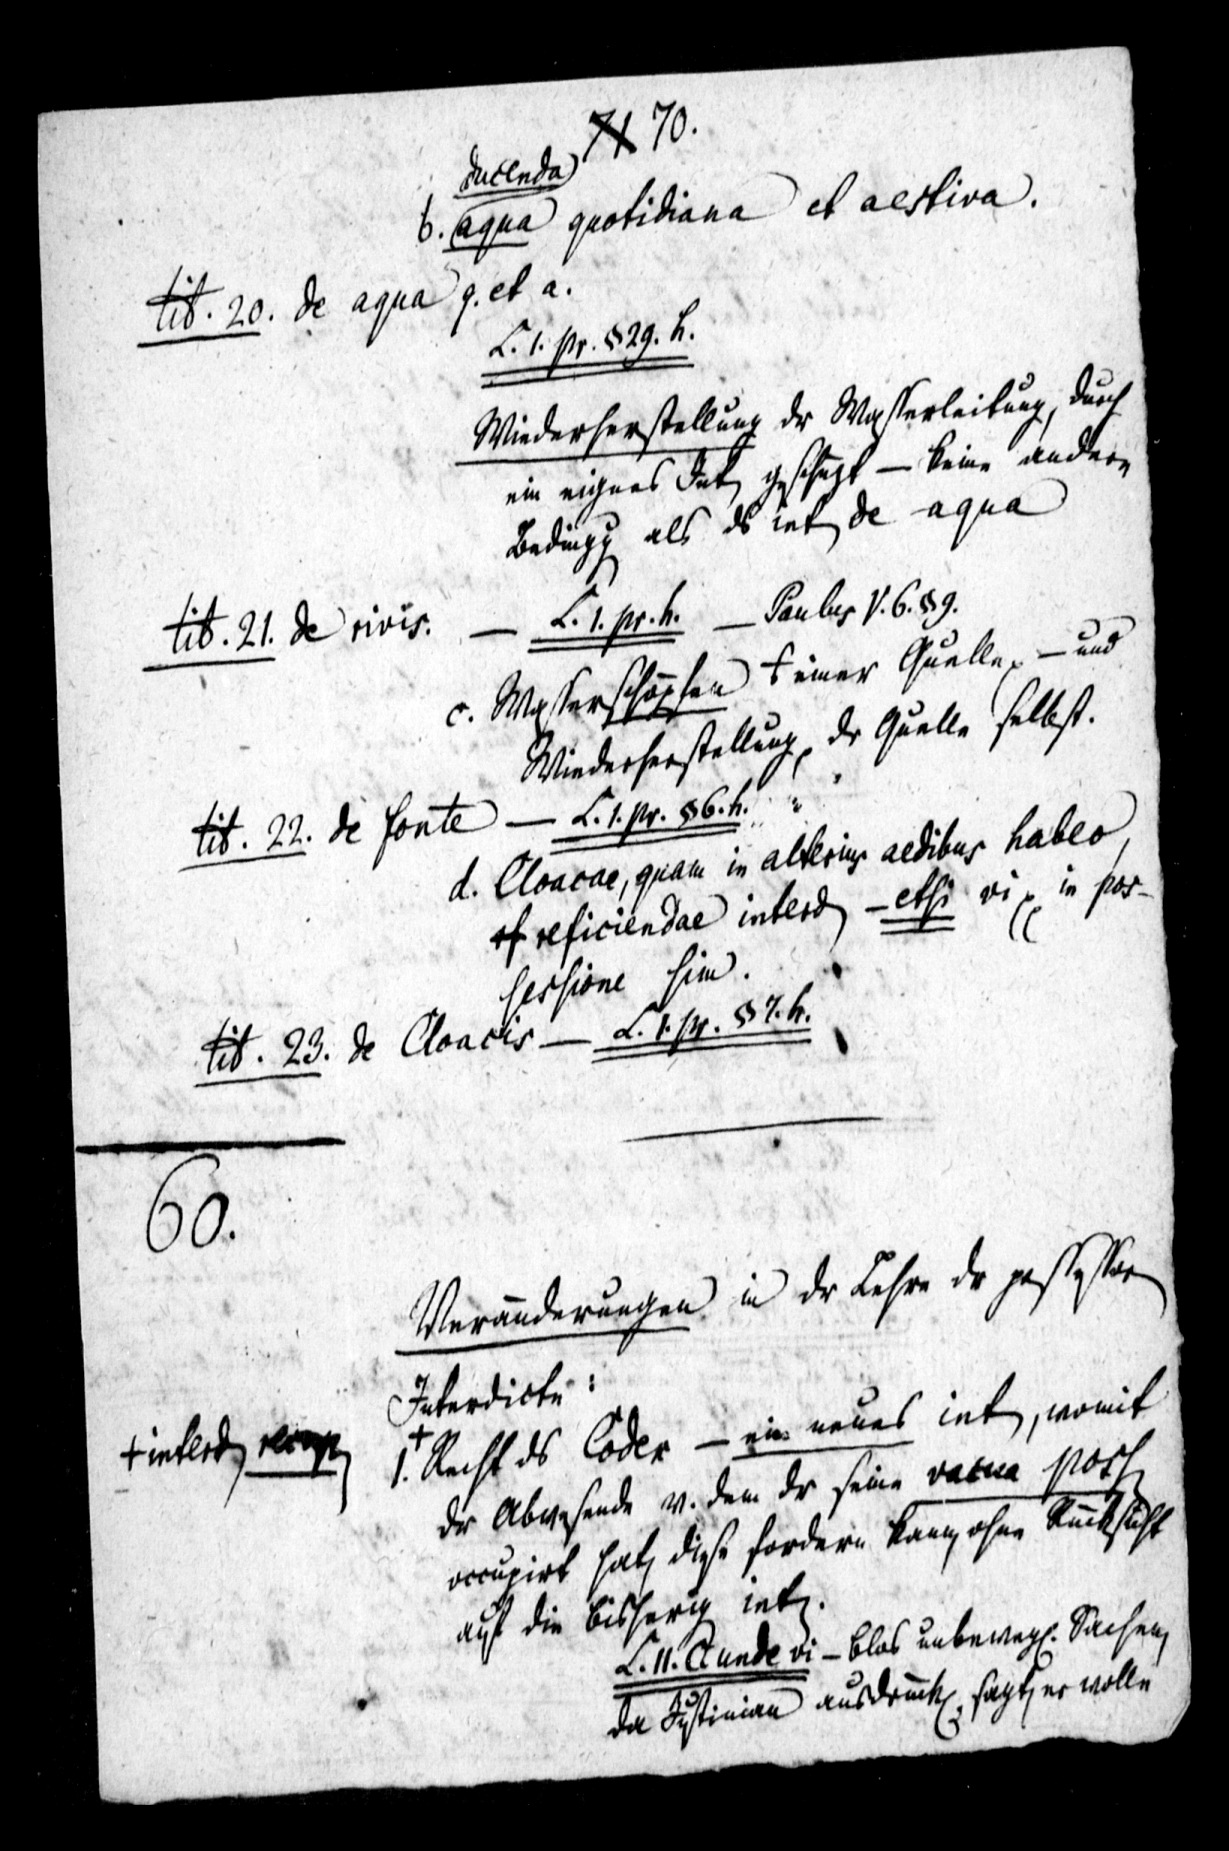 71 70.
ducenda
b. aqua quotidiana et aestiva.
tit. 20. de aqua q. et a.
L. 1. pr. §29. h.
Wiederherstellung dr Wasserleitung, durch
ein eignes Int geschüzt — keine andere
Beding als ds int de aqua
tit. 21. de rivis. — L. 1. pr. h. — Paulus V. 6. §9.
c. Wasserschöpfen einer Quelle — und
Wiederherstellung dr Quelle selbst.
tit. 22. de fonte — L. 1. pr. §6. h.
d. Cloacae, quam in alterius aedibus habeo,
reficiendae interd — etsi vi in pos-
sessione sim.
tit. 23. de Cloacis — L. 1. pr. §7. h.
60.
Veränderungen in dr Lehre dr possessor
Interdicte:
+ interd recup
1. + Recht ds Codex — ein neues int, womit
dr Abwesende v. dem dr seine vacua poss
occupirt hat, diese fordern kann, ohne Rücksicht
auf die bisherig int.
L. 11. C. unde vi — blos unbewegl. Sachen,
da Justinian ausdrückl. sagt, er wolle